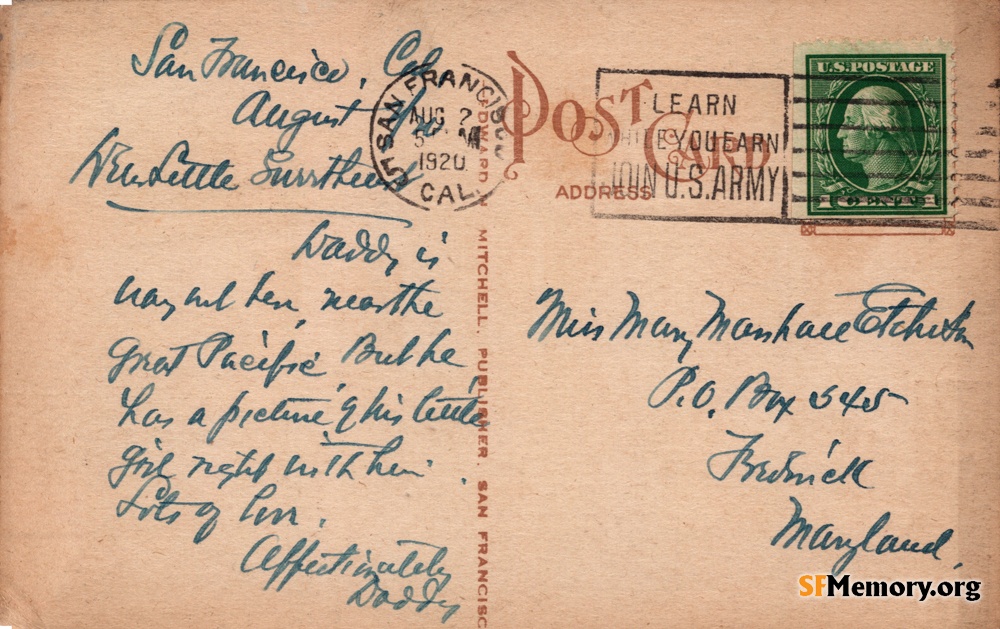 San Francisco, Cal
August
Dear Little Sweetheart
Daddy is
way out here, near the
Great Pacific, But he
has a picture of his little
girl right with him.
Lots of love,
Affectionately
Daddy
SAN FRANCISCO
AUG 2
5 M
1920
CAL.
EDWARD MITCHELL, PUBLISHER, SAN FRANCISC
POST CARD
ADDRESS
LEARN
WHILE YOU EARN
JOIN U.S. ARMY
U.S. POSTAGE
1 CENT 1
Miss Mary Marshall Etchison
P.O. Box 345
Frederick
Maryland,
SFMemory.org